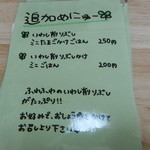 追加めにゅー
いわし削りぶし
ミニたまごかけごはん 250円
いわし削りぶし
ミニごはん 200円
ふわふわのいわし削りぶし
がたっぷり!!
お好みで、おしょうゆをかけて
お召し上り下さい